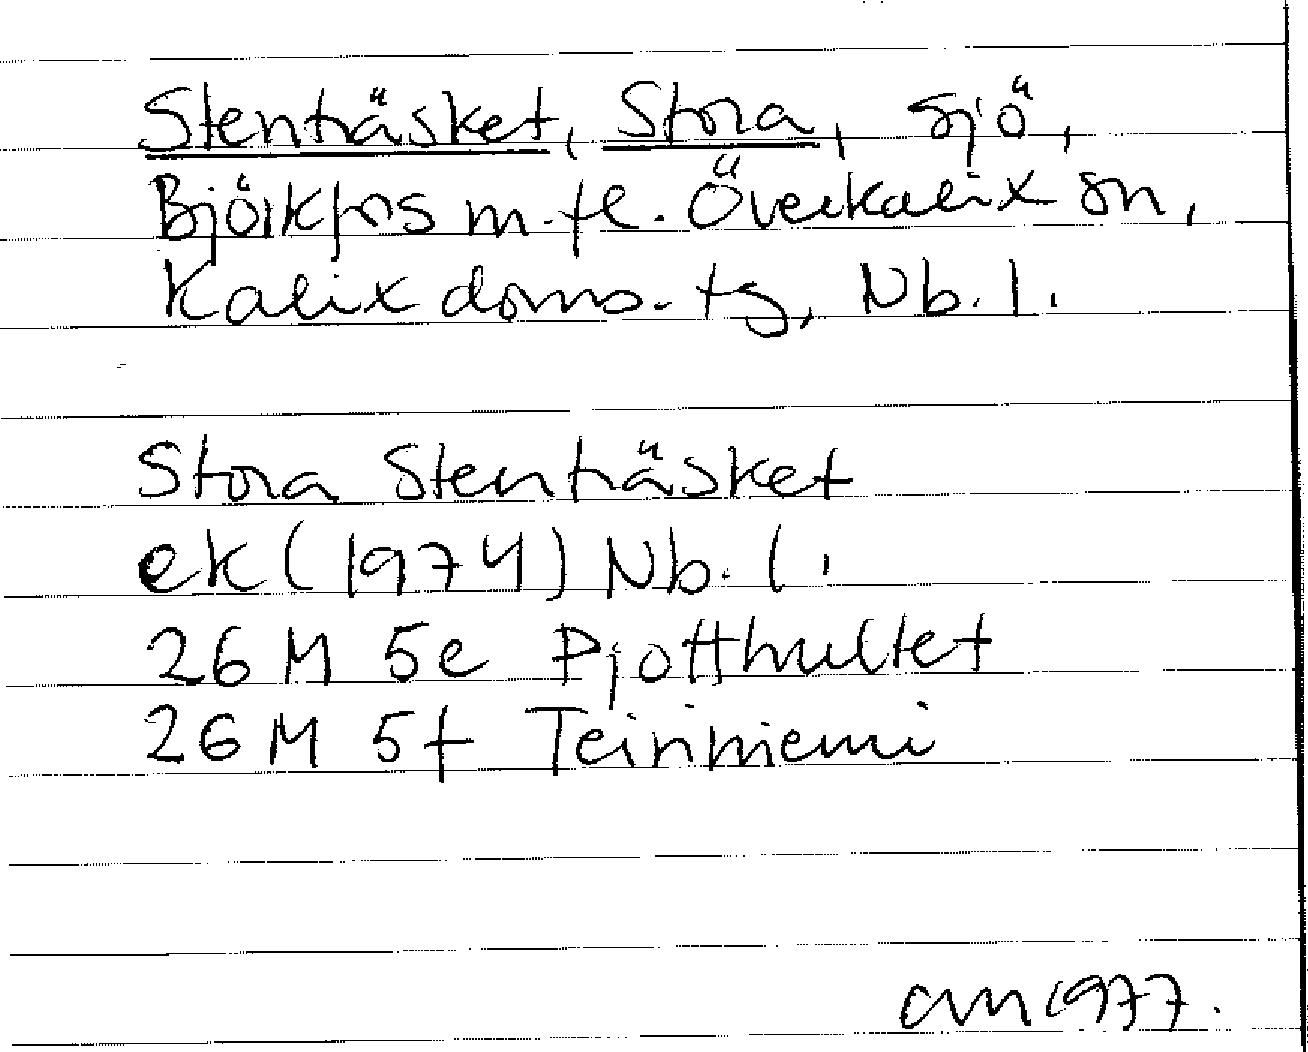 Stenträsket, Stora, sjö,
Björkfors m.fl. Överkalix sn,
Kalix doms. tg, Nb. l.
Stora Stenträsket
ek (1974) Nb. l.
26 M 5e Pjotthultet
26 M 5f Teiriniemi
am 1977.